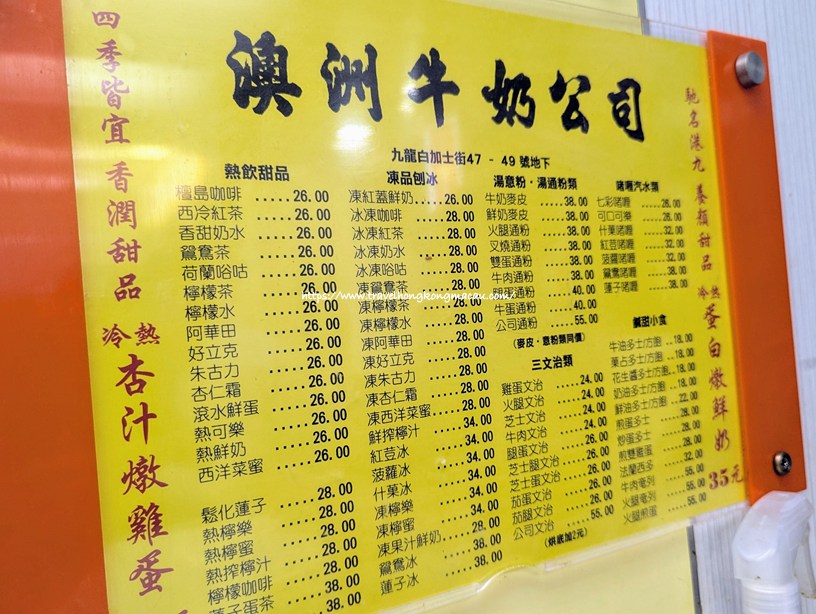 澳洲牛奶公司
九龍白加士街47 - 49 號地下
四季皆宜 香潤甜品
冷熱 杏汁燉雞蛋
熱飲甜品
檀島咖啡 .....26.00
西冷紅茶 .....26.00
香甜奶水 .....26.00
鴛鴦茶 .....26.00
荷蘭哈咕 .....26.00
檸檬茶 .....26.00
檸檬水 .....26.00
阿華田 .....26.00
好立克 .....26.00
朱古力 .....26.00
杏仁霜 .....26.00
滾水鮮蛋 .....26.00
熱可樂 .....26.00
熱鮮奶 .....26.00
西洋菜蜜 .....26.00
鬆化蓮子 .....28.00
熱檸樂 .....28.00
熱檸蜜 .....28.00
熱搾檸汁 .....28.00
檸檬咖啡 .....38.00
蓮子蛋茶 .....38.00
凍品刨冰
凍紅蓋鮮奶 .....26.00
冰凍咖啡 .....28.00
冰凍紅茶 .....28.00
冰凍奶水 .....28.00
冰凍哈咕 .....28.00
凍鴛鴦茶 .....28.00
凍檸檬茶 .....28.00
凍檸檬水 .....28.00
凍阿華田 .....28.00
凍好立克 .....28.00
凍朱古力 .....28.00
凍杏仁霜 .....28.00
凍西洋菜蜜 .....28.00
鮮搾檸汁 .....34.00
紅荳冰 .....34.00
菠蘿冰 .....34.00
什菓冰 .....34.00
凍檸樂 .....34.00
凍檸蜜 .....34.00
凍果汁鮮奶 .....28.00
鴛鴦冰 .....38.00
蓮子冰 .....38.00
湯意粉·湯通粉類
牛奶麥皮 .....38.00
鮮奶麥皮 .....38.00
火腿通粉 .....38.00
叉燒通粉 .....38.00
雙蛋通粉 .....38.00
牛肉通粉 .....38.00
腿蛋通粉 .....40.00
牛蛋通粉 .....40.00
公司通粉 .....55.00
(麥皮、意粉類同價)
三文治類
雞蛋文治 .....24.00
火腿文治 .....24.00
芝士文治 .....24.00
牛肉文治 .....24.00
腿蛋文治 .....26.00
芝士腿文治 .....26.00
芝士蛋文治 .....26.00
茄蛋文治 .....26.00
茄腿文治 .....26.00
公司文治 .....55.00
(烘底加2元)
啫喱汽水類
七彩啫喱 .....26.00
可口可樂 .....26.00
什菓啫喱 .....32.00
紅荳啫喱 .....32.00
菠蘿啫喱 .....32.00
鴛鴦啫喱 .....38.00
蓮子啫喱 .....38.00
鹹甜小食
牛油多士/方飽 ..18.00
菓占多士/方飽 ..18.00
花生醬多士/方飽 ..18.00
奶油多士/方飽 ..18.00
鮮油多士/方飽 ..22.00
煎蛋多士 .....28.00
炒蛋多士 .....28.00
煎雙雞蛋 .....28.00
法蘭西多 .....32.00
牛肉奄列 .....55.00
火腿奄列 .....55.00
火腿煎蛋 .....55.00
馳名港九 養顏甜品
冷熱 蛋白燉鮮奶 35元
https://www.travelhongkongmacau.com/